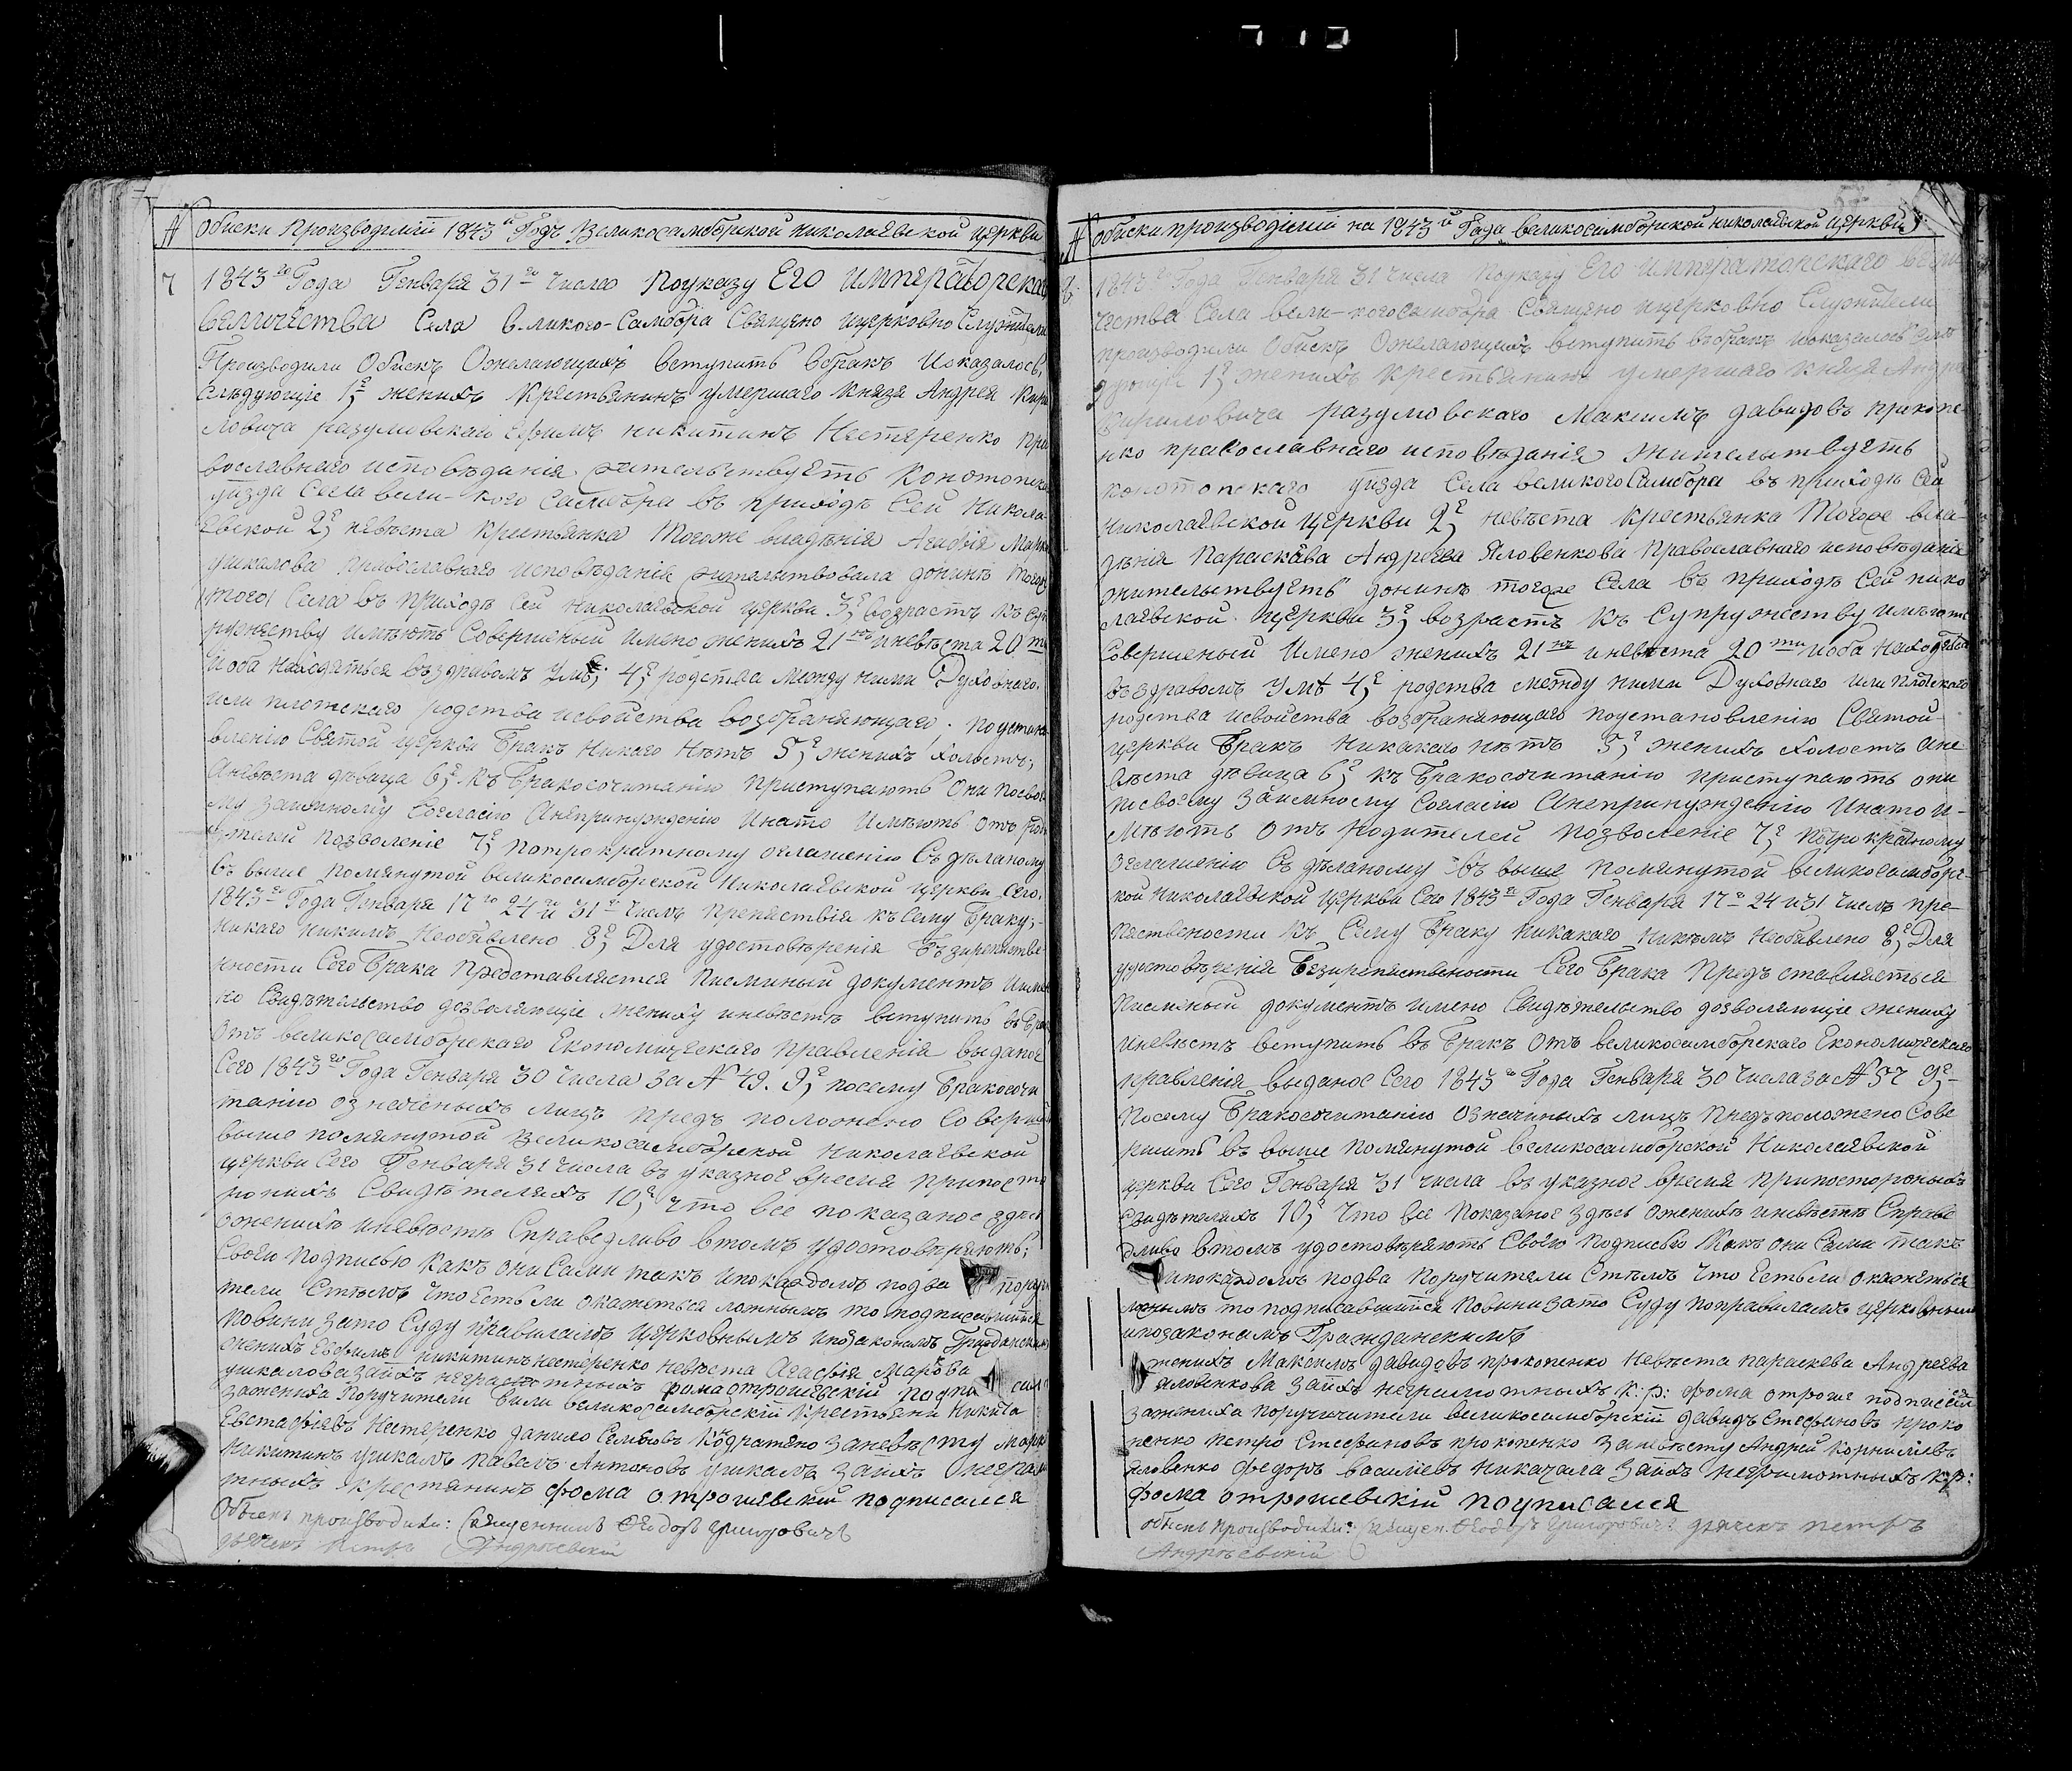 № Обиски Производимїй 1843й Годъ Великосамборской николаевской церкви
7 1843го Года Генваря 31го числа Поуказу Его Императорска
величества Села Великого-Самбора Священо ицерковно Служители
Производили Обискъ Ожелающихъ вступить вбракъ Иоказалось,
Следующіе 1е женихъ Крестьянинъ умершаго Князя Андрея Кири
ловича разумовскаго Ефимъ никитинъ Нестеренко пра
вославнаго исповеданія жительствуетъ Конотопска
уезда Села вели-кого Самбора въ приходе Сей Никола-
евской 2е невеста Крестьянка Тогоже владенія Агафія Марко
ушкалова православнаго исповеданія жительствовала доныне тогож
Села въ приходе Сей николаевской церкви 3е возрастъ къ суп
ружеству имеютъ Совершеный имено женихъ 21нъ иневеста 20ти
Иоба находяться въздравомъ уме; 4е родства между ними Духовнаго.
или плотскаго родства исвойства возбраняющаго, поустано
вленію Святой церкви бракъ Никаго Нетъ 5е женихъ холостъ,
Аневеста девица 6е къ Бракосочитанію приступаютъ Они посвое
му заимному Согласію Анепринужденію Инато Имеютъ отъ роди
телей позволеніе 7е потрократному оглашенію Съделаному
въ выше помянутой великосамборской Николаевской церкви Сего.
1843го Года Генваря 17го 24го и 31го числъ препяствія къ Сему Браку;
никаго никимъ Необявлено 8е Для удостоверенія Безпрепяствe
нности Сего Брака Представляется Писминый документъ Имe
но Свидетельство дозволяющіе жениху иневесте вступить въ Бракъ
отъ великосамборскаго Економическаго Правленія выданое
Сего 1843го Года Генваря 30 числа за № 49. 9е посему Бракосочи
танію означеныхъ лицъ предъ положено Соверши
выше помянутой Великосамборской Николаевской
церкви Сего Генваря 31 числа въ указное время припосто
ронихъ Свидетеляхъ 10е что все показаное здесь
ожених иневесте Справедливо втомъ удостоверяютъ;
Своею подписью какъ они Сами такъ ипокаждомъ подва поручи
тели Стемъ что Естьли окажеться ложнымъ то подписавшийся
повини зато Суду правиламъ церковнымъ ипозаконамъ Гражданским
женихъ Евфимъ никитинъ нестеренко невеста Агафія Маркова
ушкалова заихъ неграмотныхъ фома отрошевскій подпи сал
зажениха Поручители били великосамборскій Крестьяни Никита
Евстафіевъ Нестеренко данило Семеновъ Кодратено заневесту Марко
никитинъ ушкалъ павелъ Антоновъ ушкалъ заихъ неграмо
тныхъ крестянинъ фома отрошевскій подписался
Обыскъ производили: Священникъ Феодоръ Григоровичъ
дьячекъ Петръ Андреевскій
№ обиски производимій на 1843й Года великосамборской николаевской церкви
8. 1843го Года Генваря 31 числа Поуказу Его Императорскаго вели
чества Села вели-когосамбора Священо ицерковно Служители
производили Обискъ Ожелающихъ вступить въбракъ иоказалось сле
дующіе 1е женихъ Крестьянинъ умершаго князя Андрея
Кириловича разумовскаго Максимъ давидовъ прокопе
нко православнаго исповеданія Жительствуетъ
конотопскаго уезда Села великого Самбора въ приходе Сей
Николаевской церкви 2е невеста Крестьянка Тогоже вла-
денія Параскева Андреева Яловенкова Православнаго исповеданія
жительствуетъ доныне тогоже Села въ приходе Сей нико
лаевской церкви 3е возрастъ къ Супружеству имеютъ
Совершеный Имено женихъ 21нъ иневеста 20ти иоба находяться
въздравомъ уме 4е родства между ними Духовнаго или плотскаго
родства исвойства возбраняющаго поустановленію Святой
церкви Бракъ никакаго нетъ 5е женихъ холостъ ане
веста девица 6е къ Бракосочитанію приступаютъ они
посвоему заимному Согласію Анепринужденію Инато и-
меютъ отъ родителей позволеніе 7е потрократному
оглашенію Съделаному въ выше Помянутой великосамборс
кой Николаевской церкви Сего 1843го Года Генваря 17го 24 и31 числъ пре-
пяствености къ Сему Браку никакаго никемъ необявлено 8е Для
удостовереній Безпрепяствености Сего Брака Предъставляеться
Писмяный документъ имено Свидетельство дозволяющіе жениху
иневесте вступить въ Бракъ отъ великосамборскаго Економическаго
правленія выданое Сего 1843го Года Генваря 30 числа за № 57 9е-
Посему Бракосочитанію означиныхъ лицъ Предъположено Сове
ршить въ выше помянутой великосамборской Николаевской
церкви Сего Генваря 31 числа въ указное время Припостороныхъ
Свидетеляхъ 10е Что все Показаное здесь ожених иневесте Справе
дливо втомъ удостоверяютъ Своею Подписью Какъ они Сами такъ
ипокаждомъ подва Поручители Стемъ что Естьли окажеться
ложнымъ то подписавшийся повини зато Суду поправиламъ церковным
ипозаконамъ Гражданскимъ
женихъ Максимъ давидовъ прокопенко Невеста параскева Андреева
яловенкова заихъ неграмотныхъ к: р: фома отроше подписал
зажениха поручители великосамборскій давидъ Стефановъ проко
пенко петро Стефановъ прокопенко заневесту Андрей Корнилиевъ
яловенко федоръ василіевъ никачала заихъ неграмотныхъ к:р:
фома отрошевскій подписался
обыскъ производили: Священ. Феодоръ Григоровичъ дьячекъ петръ
Андреевскій